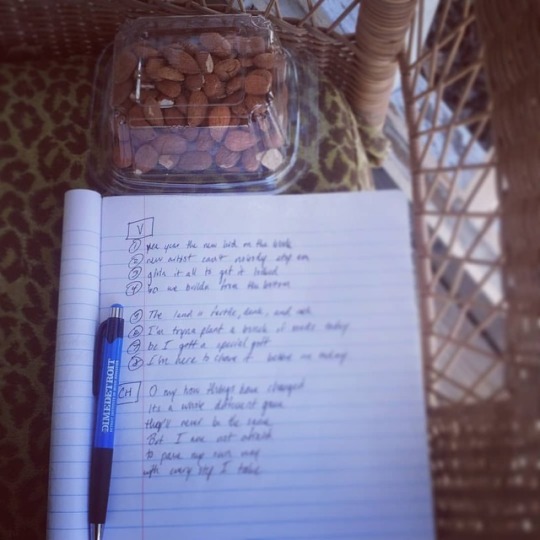 V
① yea you the new kid on the block
② new artist can't nobody stop em
③ give it all to get it locked
④ so we build from the bottom
⑤ The land is fertile, dark, and rich
⑥ I'm tryna plant a bunch of seeds today
⑦ I gotta special gift
⑧ I'm here to share it before
CH
O my how things have changed
Its a whole different game
they'll never be the same
But I am not afraid
to pave my own way
with every step I take
DIMEDETROIT